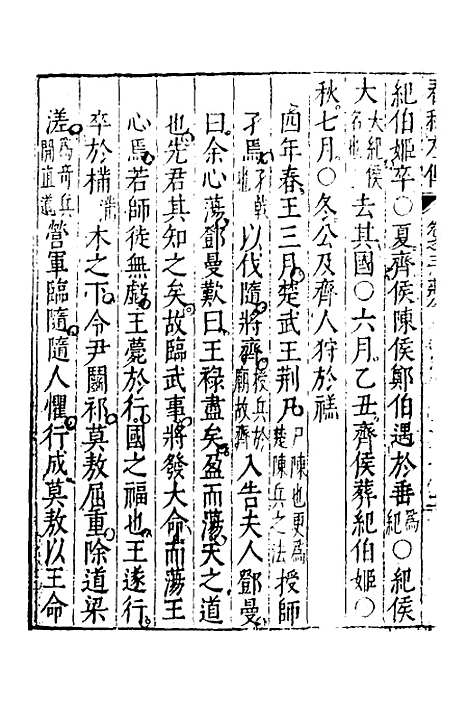 紀伯姬卒○夏齊侯陳侯鄭伯遇於垂○紀侯
大大紀侯名也去其國○六月乙丑齊侯葬紀伯姬○
秋七月○冬公及齊人狩於禚
四年春王三月楚武王荆尸尸陳也更為楚陳兵之法授師
孑焉以伐隨將齊授兵於廟故齊入告夫人鄧曼
曰余心蕩鄧曼歎曰王祿盡矣盈而蕩天之道
也先君其知之矣故臨武事將發大命而蕩王
心焉若師徒無虧王薨於行國之福也王遂行
卒於樠木之下令尹鬭祁莫敖屈重除道梁
溠為奇兵開直道營軍臨隨隨人懼行成莫敖以王命